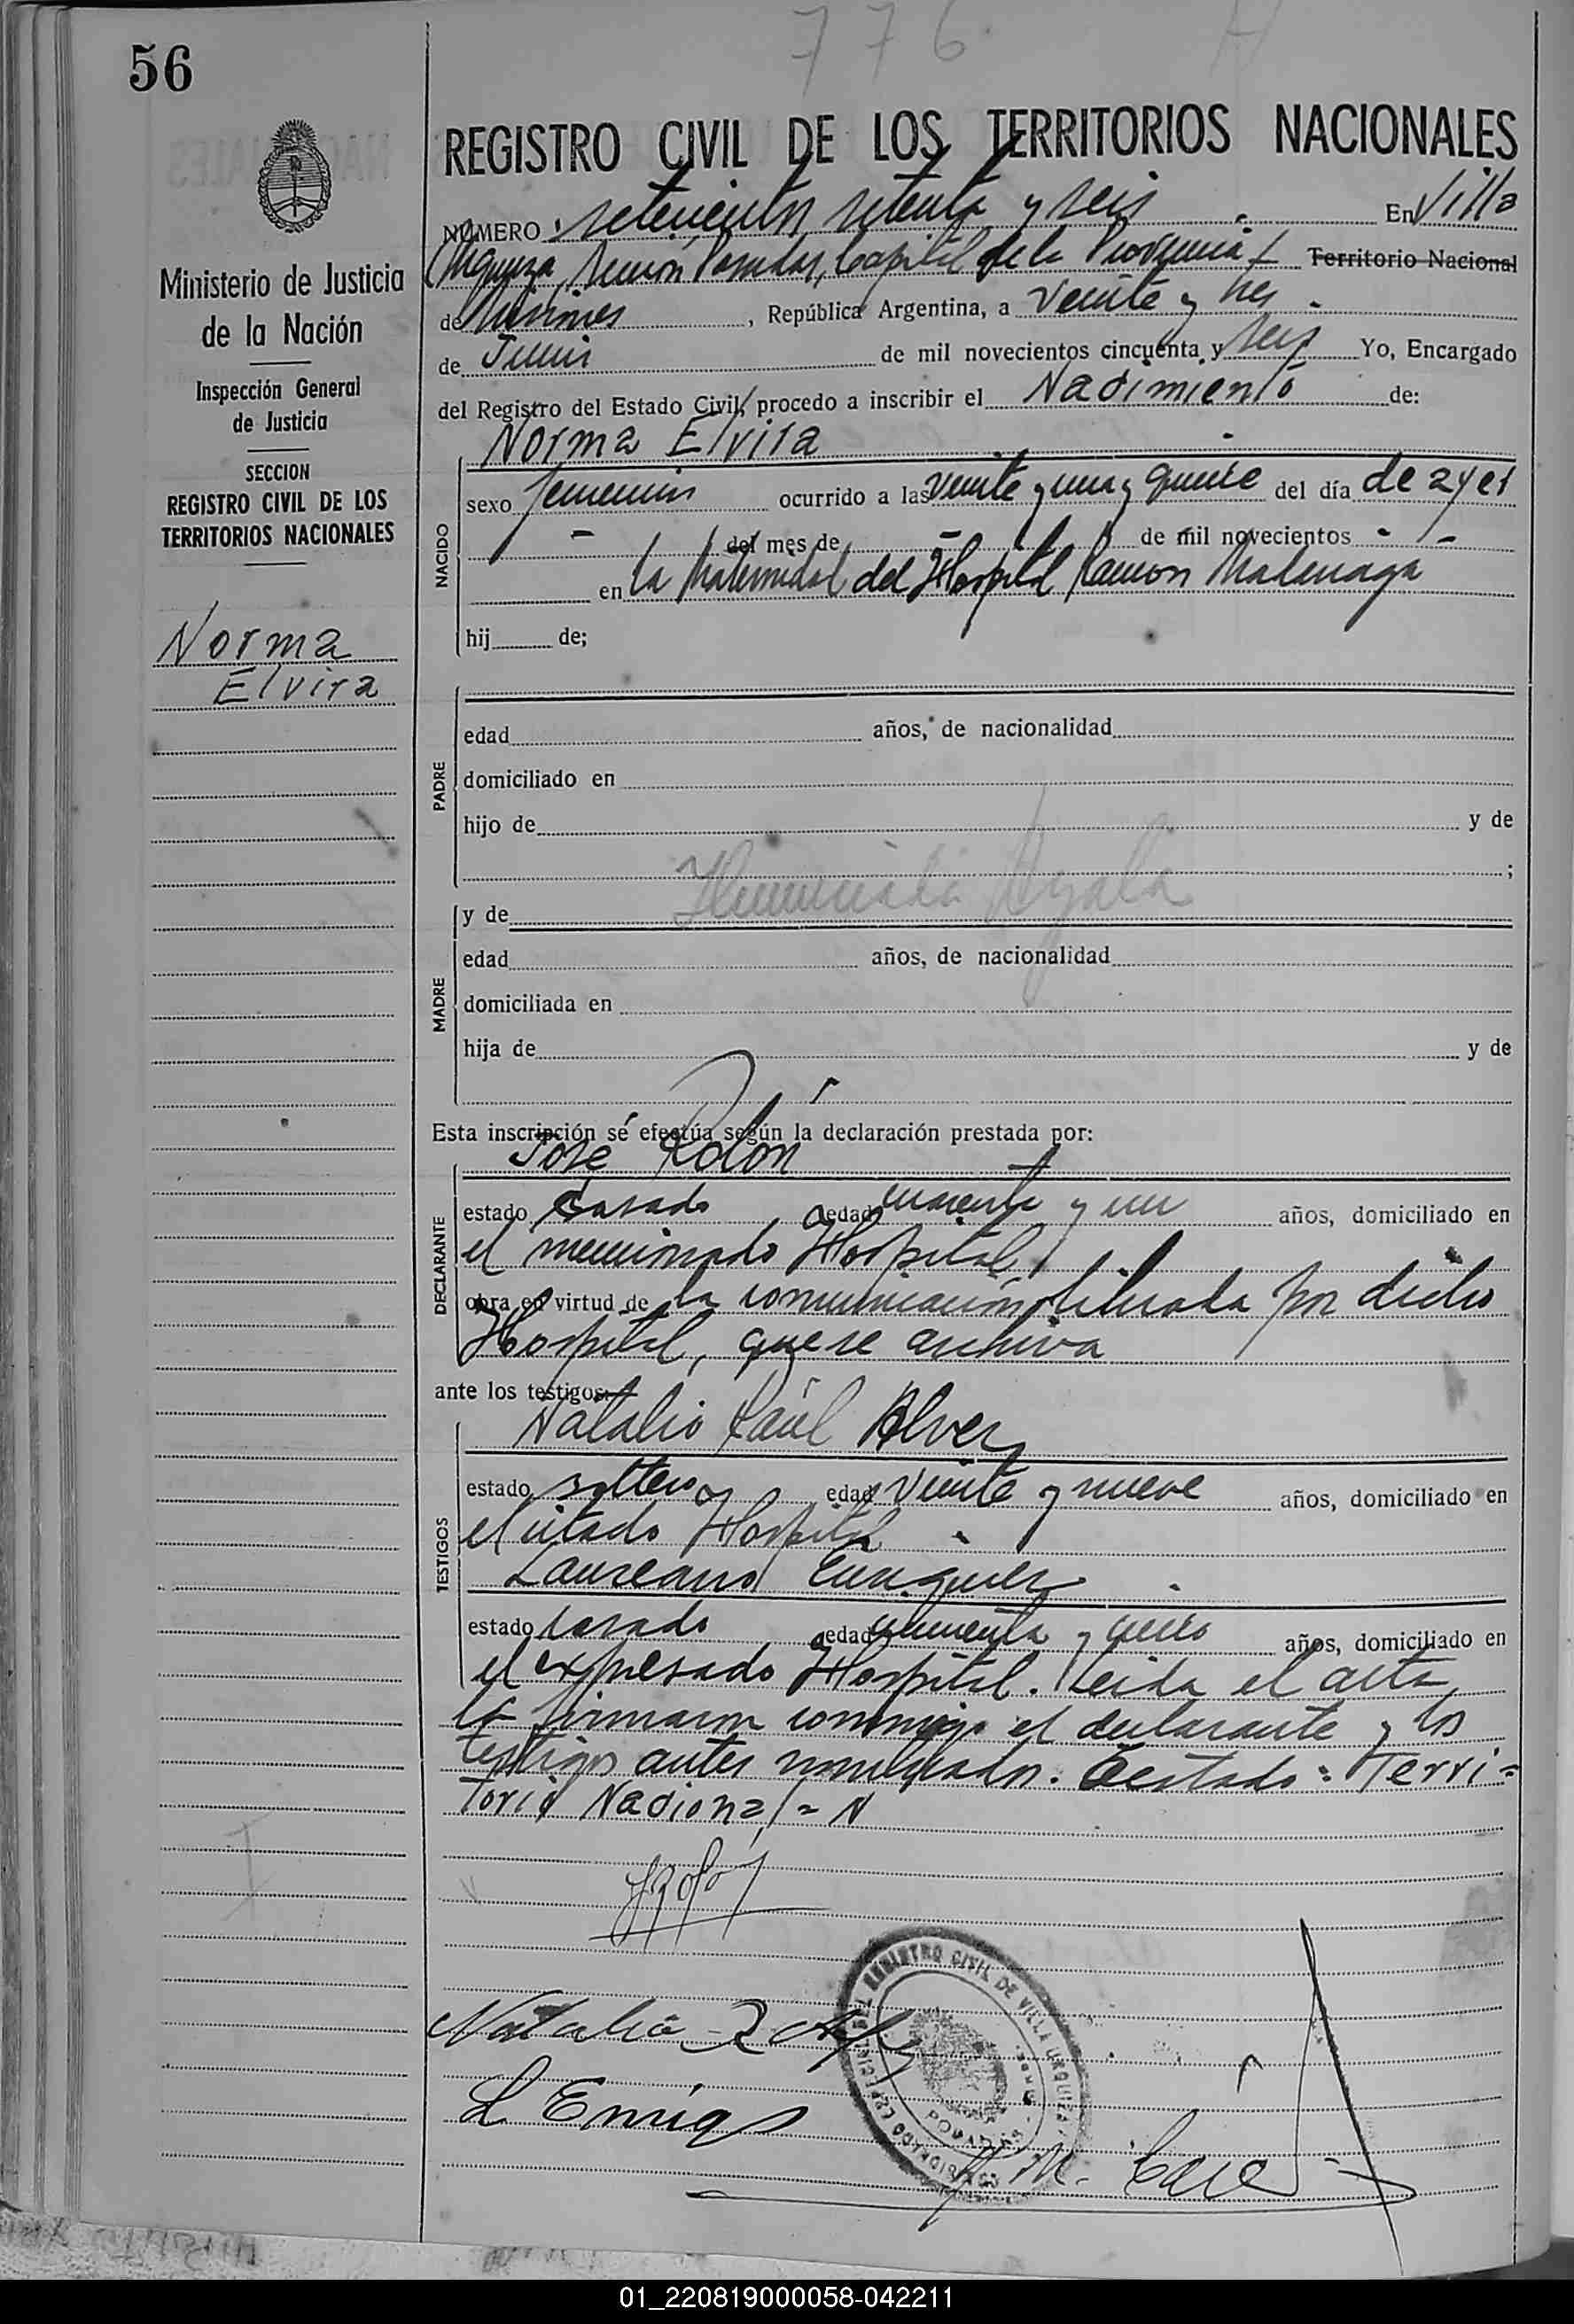 776
56
REGISTRO CIVIL DE LOS TERRITORIOS NACIONALES
NÚMERO setecientos setenta y seis En Villa
Urquiza, Sección Posadas, Capital de la Provincia Territorio Nacional
de Misiones, República Argentina, a veinte y tres
de Junio de mil novecientos cincuenta y seis Yo, Encargado
del Registro del Estado Civil, procedo a inscribir el Nacimiento de:
Norma Elvira
Ministerio de Justicia
de la Nación
Inspección General
de Justicia
SECCION
REGISTRO CIVIL DE LOS
TERRITORIOS NACIONALES
Norma
Elvira
NACIDO
sexo femenino ocurrido a las veinte y una y quince del día de ayer
- del mes de - de mil novecientos - -
en la Maternidad del Hospital Ramon Madariaga
hij de;
PADRE
edad años, de nacionalidad
domiciliado en
hijo de y de
;
MADRE
y de Ayala
edad años, de nacionalidad
domiciliada en
hija de y de
Esta inscripción se efectúa según la declaración prestada por:
José Rolón
DECLARANTE
estado casado edad cuarenta y un años, domiciliado en
el mencionado Hospital
obra en virtud de la comunicación librada por dicho
Hospital, que se archiva
ante los testigos:
Natalio Raúl Alvez
TESTIGOS
estado soltero edad veinte y nueve años, domiciliado en
el citado Hospital
Laureano Enriquez
estado casado edad años, domiciliado en
el expresado Hospital. Leida el acta,
la firmaron conmigo el declarante y los
testigos antes nombrados. Testado: Terri=
torio Nacional = N
Natalio R
L Enriq
REGISTRO CIVIL DE VILLA URQUIZA
POSADAS
M.
01_220819000058-042211